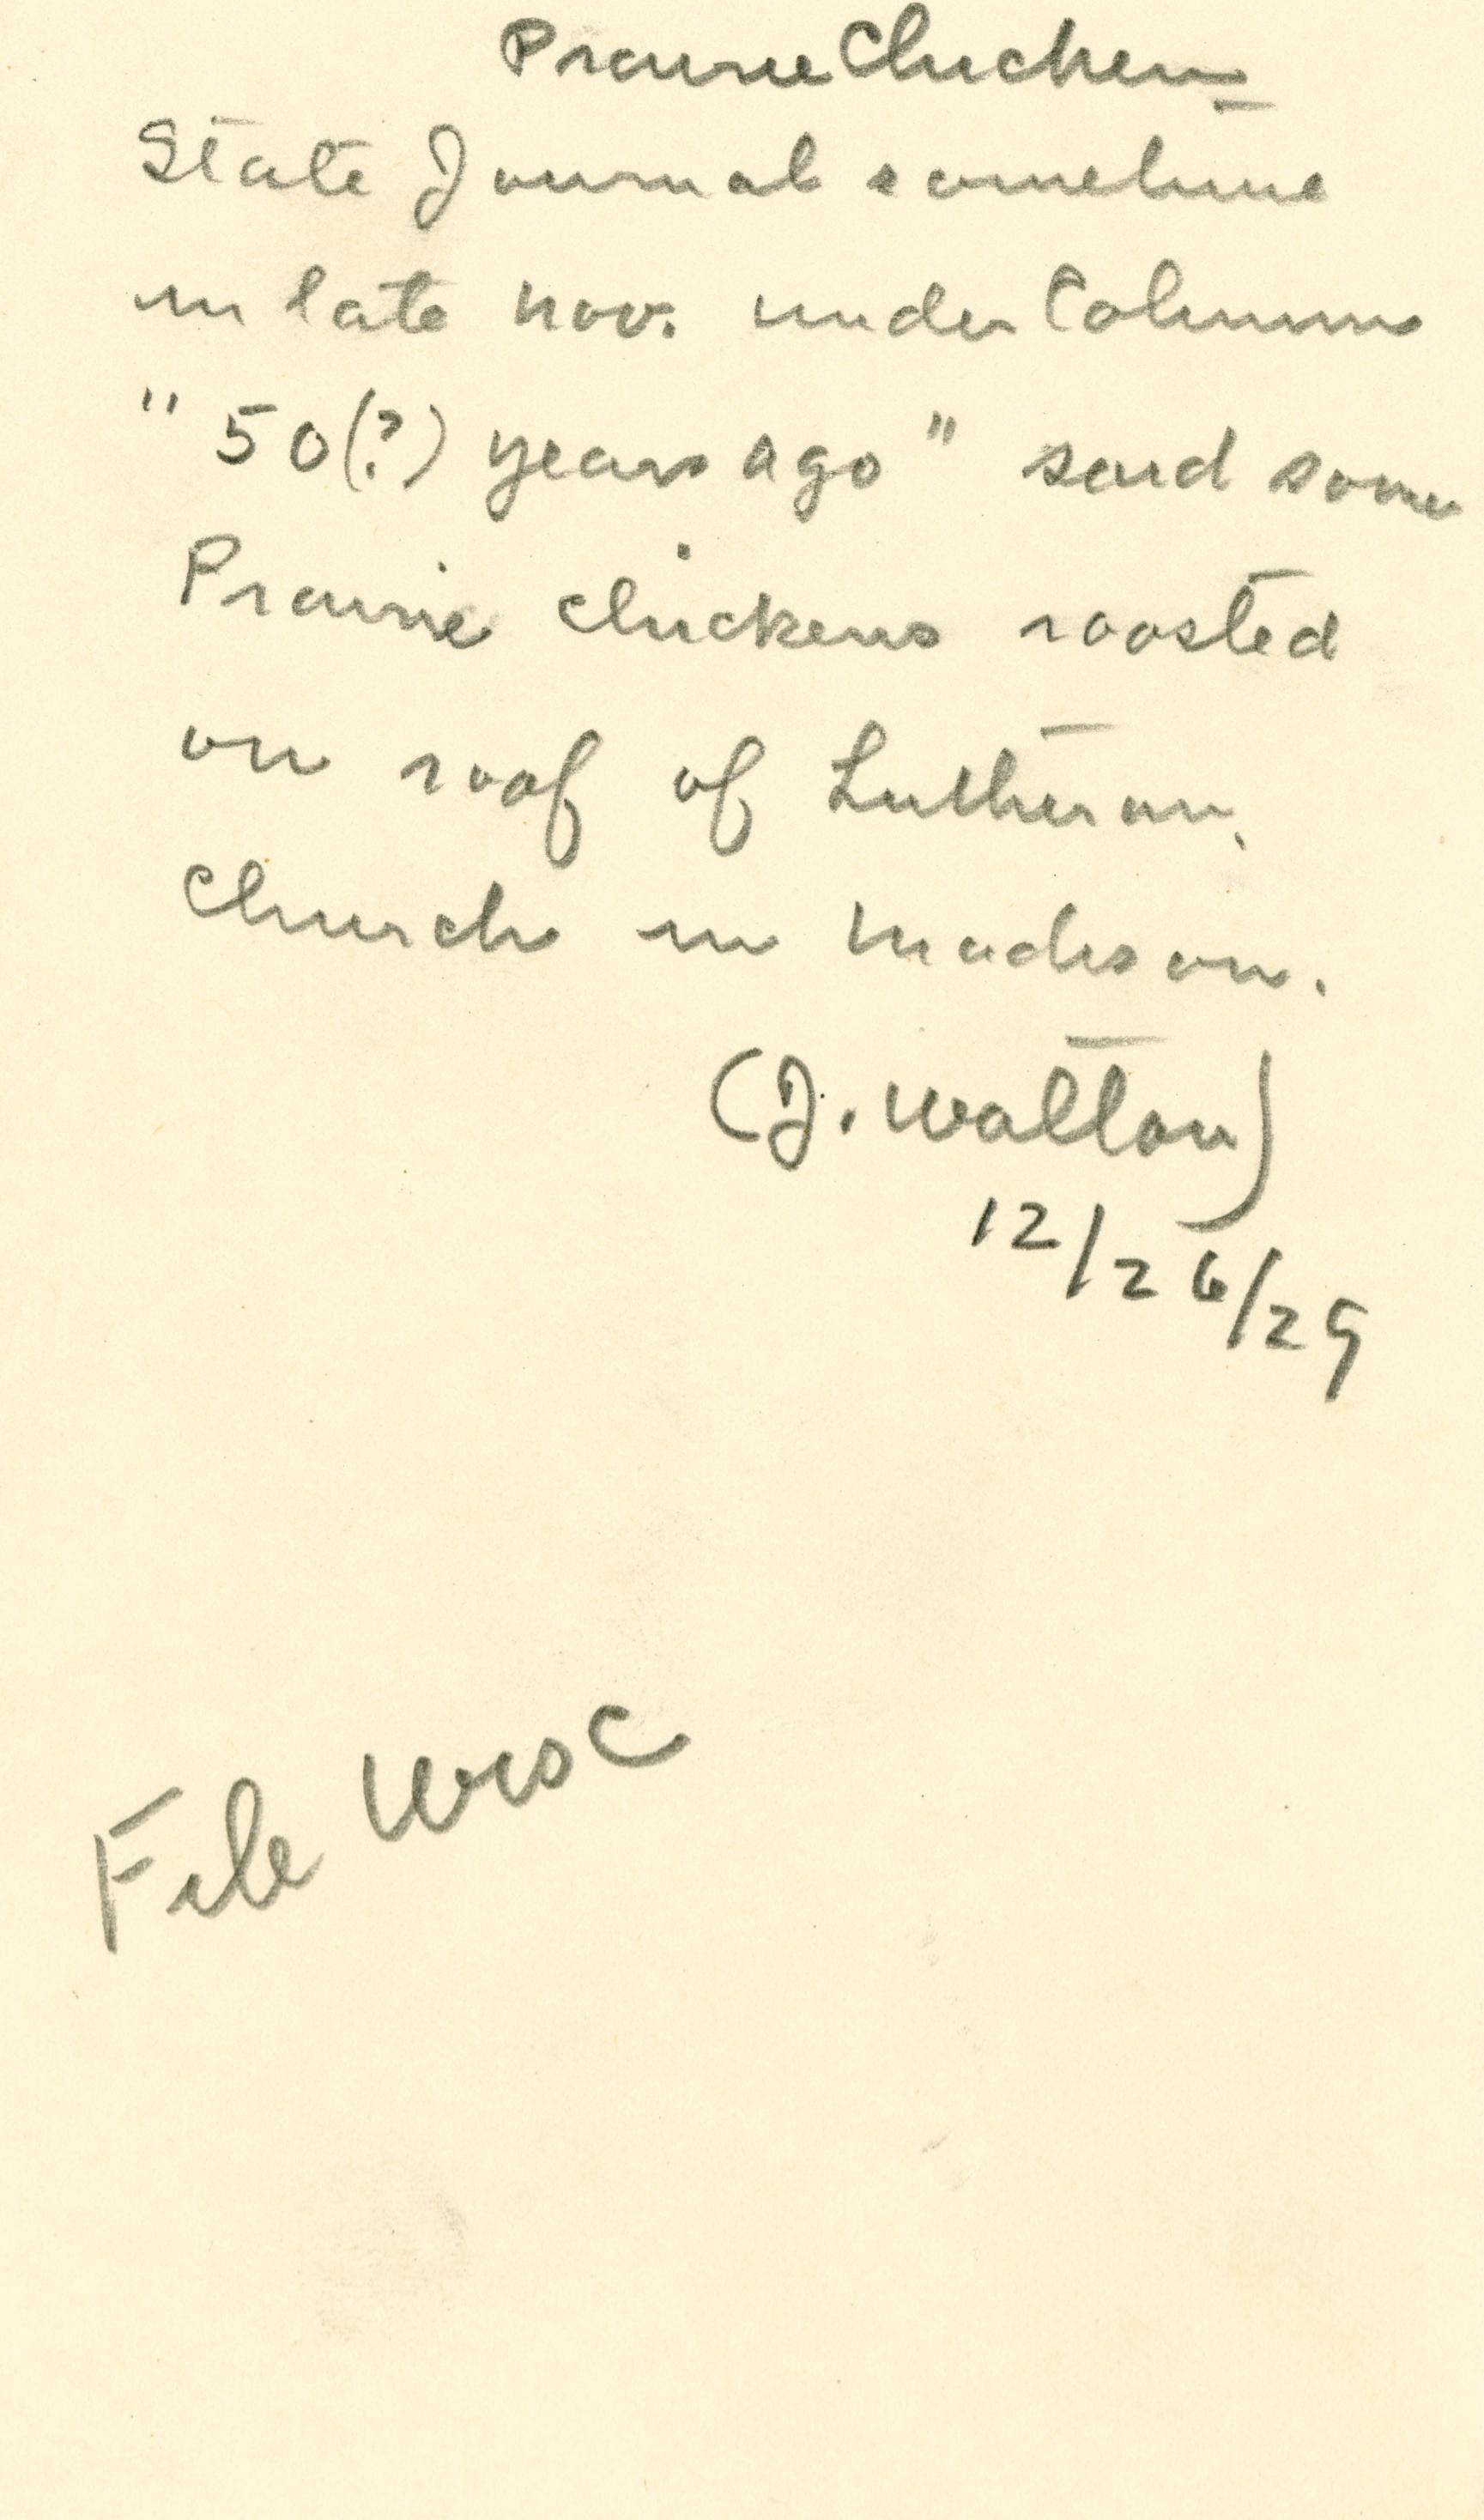 Prairie Chicken
State Journal sometime
in late Nov. under Column
" 50(?) years ago " said some
Prairie chickens roosted
on roof of Lutheran
Church in Madison.
(J. Walton)
12/26/29
File Wisc